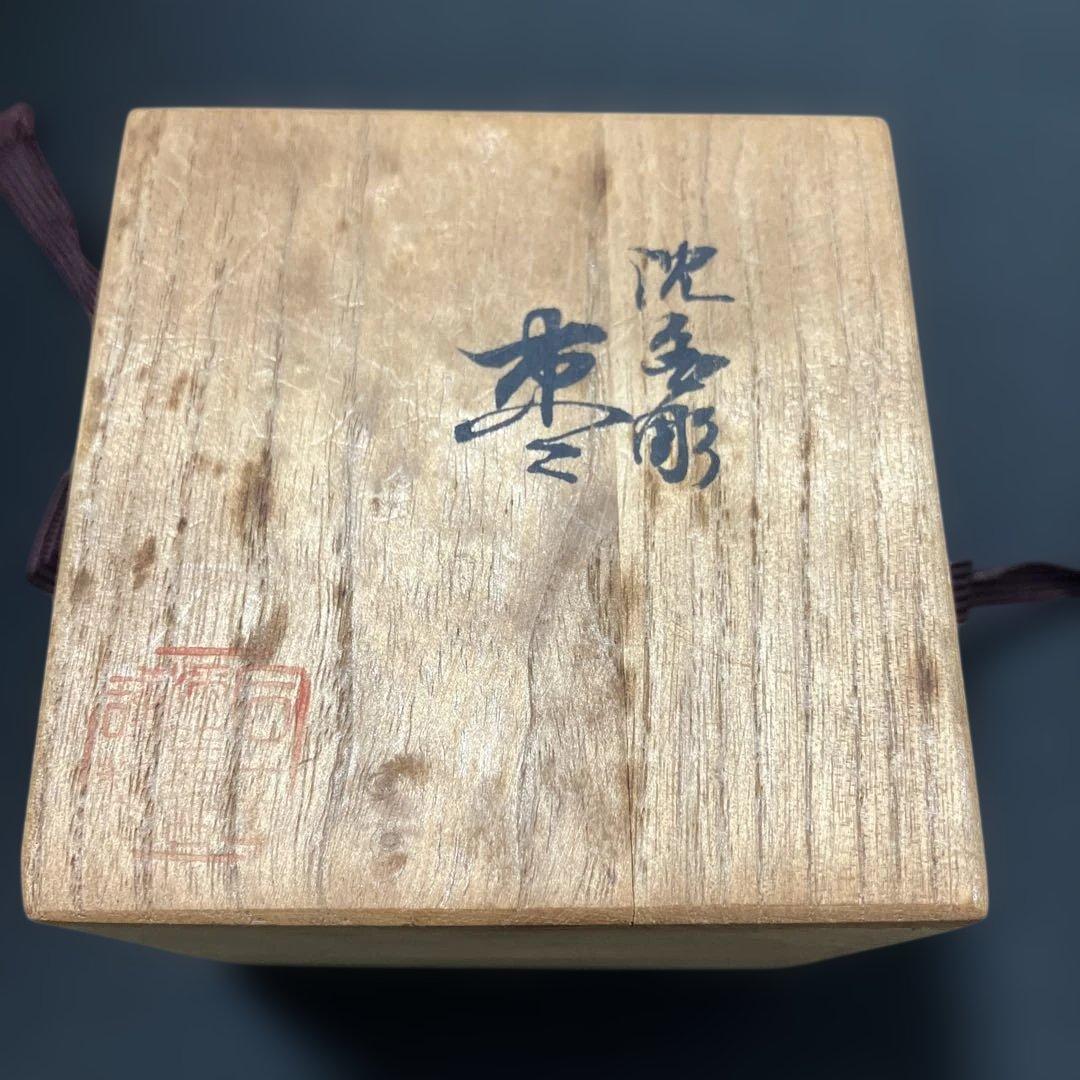 沈金彫
棗